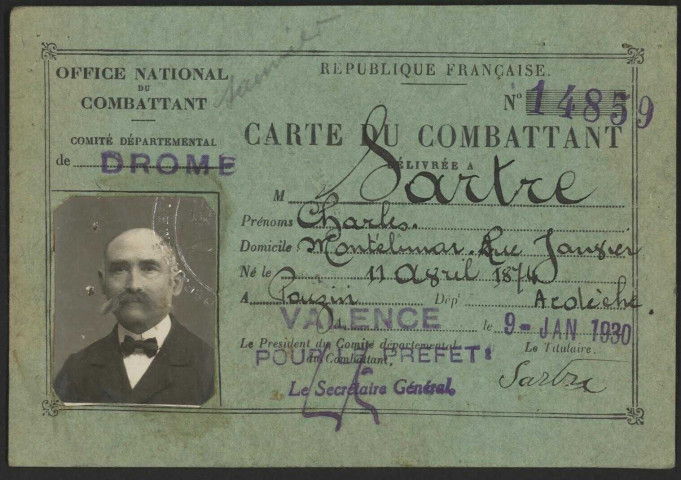 OFFICE NATIONAL
DU
COMBATTANT
COMITÉ DÉPARTEMENTAL
de DROME
REPUBLIQUE FRANÇAISE.
N° 14859
CARTE DU COMBATTANT
DÉLIVRÉE A
M Sartre
Prénoms Charles.
Domicile : Montélimar. Rue
Né le 11 Avril 1874
A Pouzin Dépt Ardèche.
VALENCE le 9 - JAN 1930
Le Président du Comité départemental
du Combattant,
POUR LE PREFET:
Le Secrétaire Général,
Le Titulaire.
Sartre